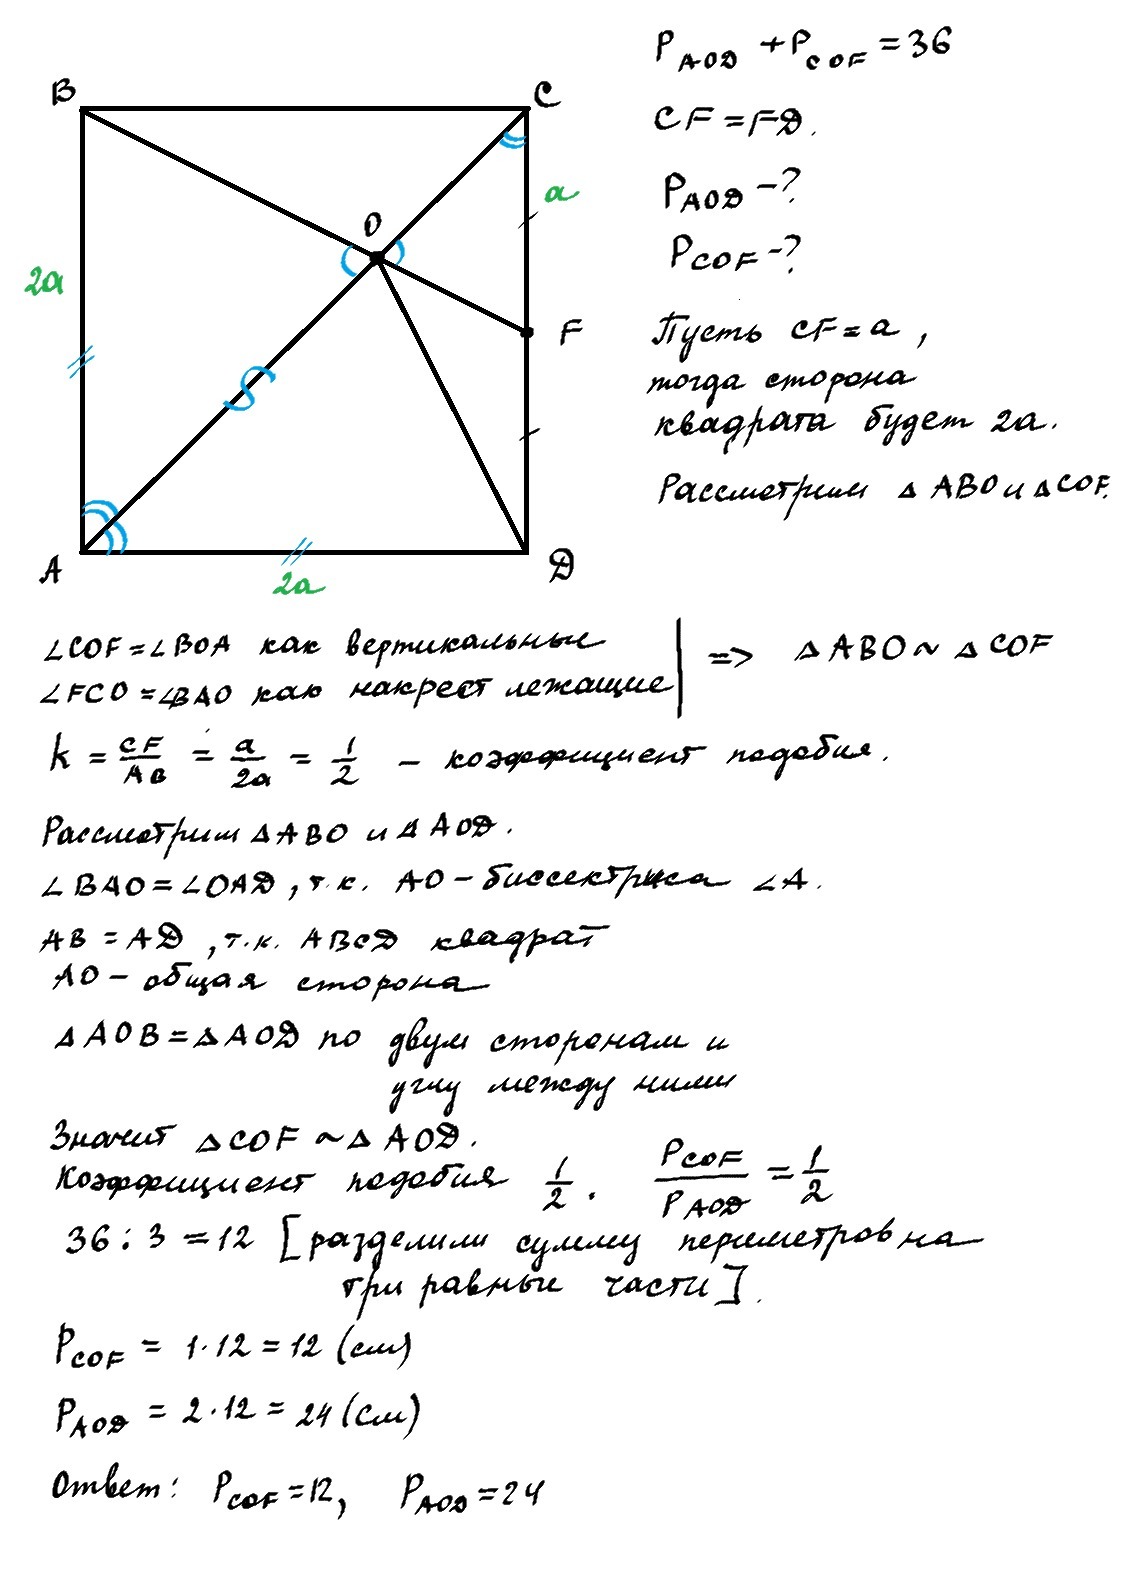 B
C
O
a
2a
F
A
2a
D
P AOD + P COF = 36
CF = FD.
P AOD - ?
P COF - ?
Пусть CF = a ,
тогда сторона
квадрата будет 2a.
Рассмотрим Δ ABO и Δ COF.
∠COF = ∠BOA как вертикальные
∠FCO = ∠BAO как накрест лежащие
=> Δ ABO ~ Δ COF
k = CF/AB = a/2a = 1/2 – коэффициент подобия.
Рассмотрим Δ ABO и Δ AOD.
∠ BAO = ∠OAD , т.к. AO – биссектриса ∠A.
AB = AD , т.к. ABCD квадрат
AO – общая сторона
Δ AOB = Δ AOD по двум сторонам и
углу между ними
Значит Δ COF ~ Δ AOD.
Коэффициент подобия 1/2 . P COF / P AOD = 1/2
36 : 3 = 12 [разделили сумму периметров на
три равные части].
P COF = 1·12 = 12 (см)
P AOD = 2·12 = 24 (см)
Ответ: P COF = 12, P AOD = 24